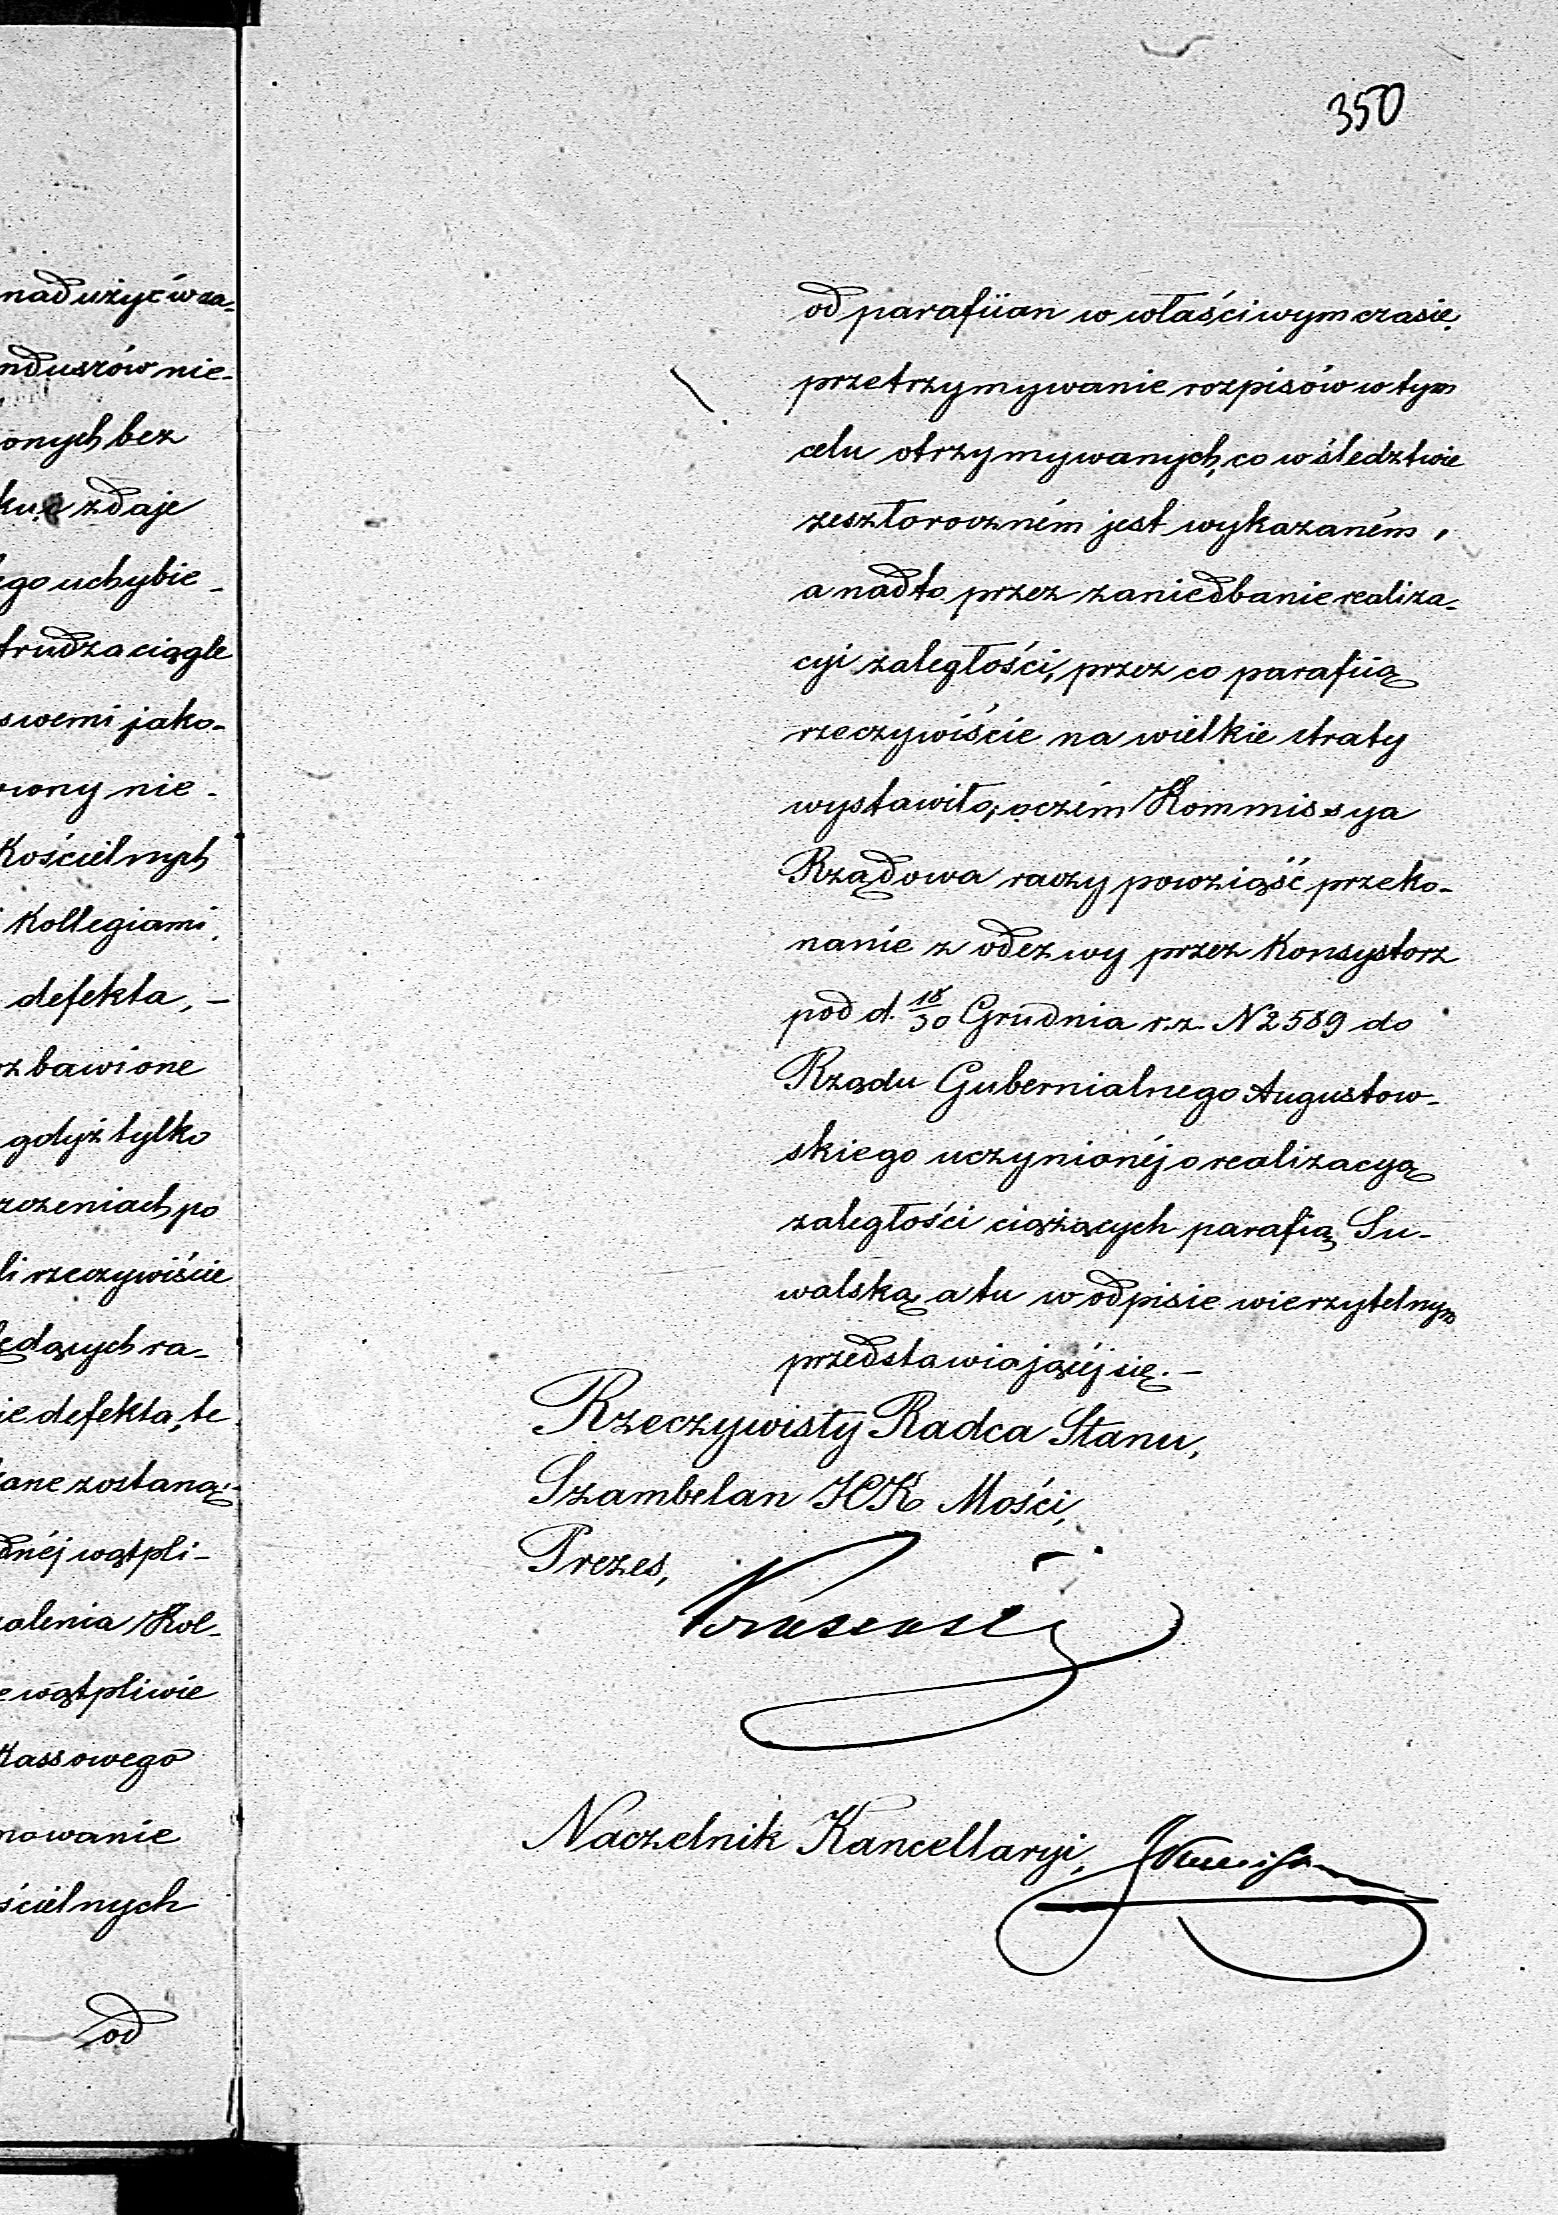 nadużyć w za-
nduszów nie-
onych bez
zdaje
ego uchybie-
trudza ciągle
swemi jako-
iony nie-
Kościelnych
i Kollegiami,
defekta, -
ozbawione
gdyż tylko
rzczeniach po
li rzeczywiście
będących ra-
ie defekta, te
kane zostaną;
dnéj wątpli-
alenia Kol-
e wątpliwie
Kassowego
mowanie
ścielnych
od
350
od parafiian w właściwym czasie,
przetrzymywanie rozpisów w tym
celu otrzymywanych, co w śledztwie
zesztoroczném jest wykazaném,
a nadto przez zaniedbanie realiza-
cyi zaległości, przez co parafiią
rzeczywiście na wielkie straty
wystawiło, oczém Kommissya
Rządowa raczy powziąść przeko-
nanie z odezwy przez Konsystorz
pod d. 18/30 Grudnia r.z. N 2589 do
Rządu Gubernialnego Augustow-
skiego uczynionéj o realizacyą
zaległości ciążących parafią Su-
walską a tu w odpisie wierzytelnym
przedstawiającéj się. -
Rzeczywisty Radca Stanu,
Szambelan JCK Mości,
Prezes,
Naczelnik Kancellaryi,